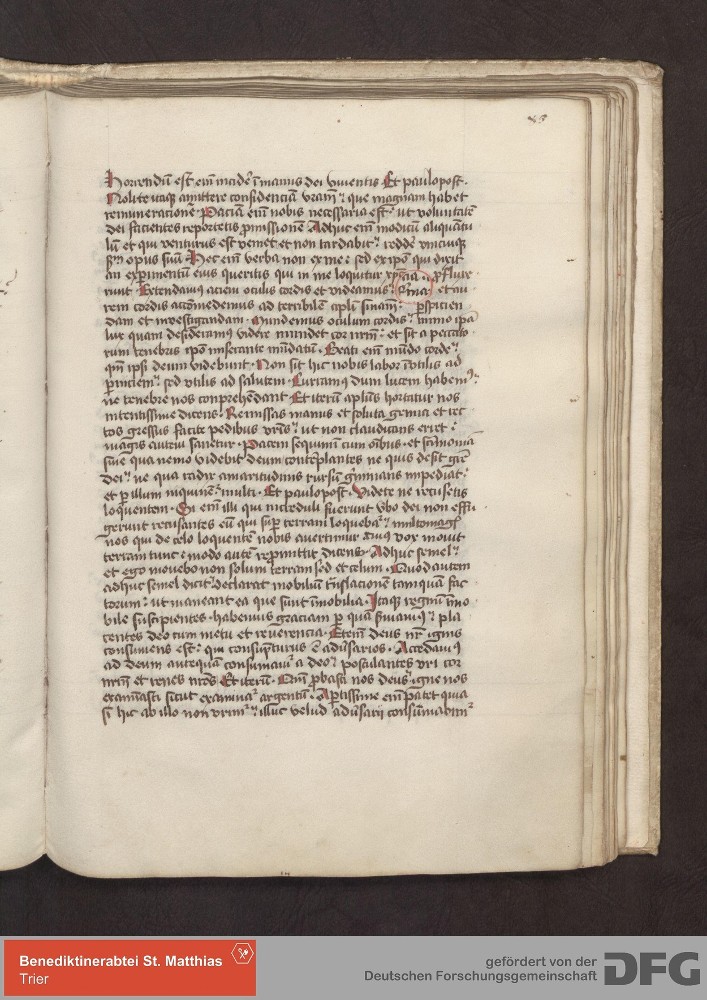 85
Horrendū est em̄ incidē ī manus dei viuentis Et paulopost·
Nolite itaq̄ amittere confidenciā vrām que magnam habet
remuneracionē Paciā em̄ nobis necessaria est ut voluntatē
dei facientes reportetis ꝓmissionē Adhuc em̄ modicū aliquātu
lū et qui venturus est veniet et non tardabit reddē vnicuiqꝫ
opus suū Hec em̄ verba non ex me sed ex ipō qui dixit
an experimentū eius queritis qui in me loquitur
runt Extendamus aciem oculis cordis et videamus et au
rem cordis accōmedemus ad terribilē sinam
dam et inuestigandam Mundemus oculum cordis immo ipā
lux quam desideramus videre mundet cor nrm et sit a peccato
rum tenebris Beati em̄ mūdo corde
qm̄ ipsi deum videbunt Non sit hic nobis labor īvtilis ad
ꝑniciem sed vtilis ad salutem Curramꝰ dum lucem habemꝰ
ne tenebre nos conprehēdant Et iterū aplūs hortatur nos
intentissime dicens Remissas manus et soluta genua et rec
tos gressus facite pedibus vrīs ut non claudicans erret
magis autem sanetur Pacem sequimī cum oībus et scīmonia
sine qua nemo videbit deum contēplantes ne quis desit grē
dei ne qua radix amaritudinis rursū germinans impediat
et ꝑ illum inquinēt multi Et paulopost Videte ne recusetis
loquentem Si em̄ illi qui increduli fuerunt vbo dei non effu
gerunt recusantes eū qui suꝑ terram loquebat multomagꝭ
nos qui de celo loquentē nobis auertimur Cuiꝰ vox mouit
terram tunc modo autē repmittit dicens Adhuc semel
et ego mouebo non solum terram sed et celum Quod autem
adhuc semel dicit declarat mobiliū trnslacionē tamquam fac
torum ut maneant ea que sunt īmobilia Itaqꝫ regnū īmo
bile suscipientes habemus graciam ꝑ quā ſuiamꝰ pla
centes deo cum metu et reuerencia Etem̄ deus nr̄ ignis
consumens est qui consūpturus ē adūsarios Accedamꝰ
ad deum antequā consumamur a deo postulantes vri cor
nrm̄ et renes nrōs Et iterū Qm̄ ꝓbasti nos deus igne nos
examinasti sicut examinat argentū Aptissime em̄ patet quia
si hic ab illo non vrimur illuc velud adūsarii consūmabimur
Benediktinerabtei St. Matthias
Trier
gefördert von der
Deutschen Forschungsgemeinschaft
DFG